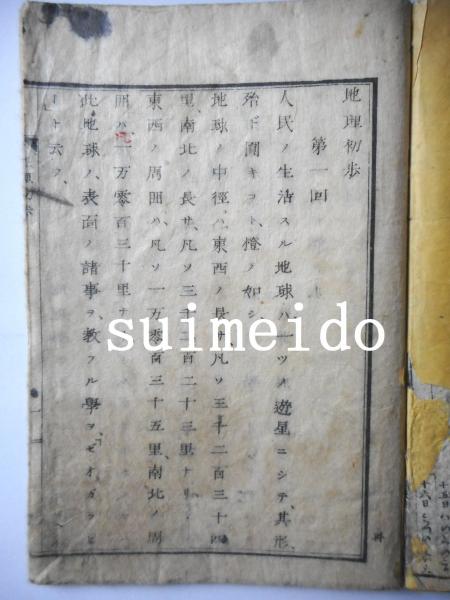 地理初歩
第一回
人民ノ生活スル地球ハ一ツノ遊星ニシテ、其形、
殆ド圓キコト、橙ノ如シ、
地球ノ中徑ハ、東西ノ長サ、凡ソ三千二百三十四
里、南北ノ長サ、凡ソ三千二百二十三里ナリ、
東西ノ周囲ハ、凡ソ一万零百三十五里、南北ノ周
囲ハ、一万零百三十里ナ
此地球ノ、表面ノ諸事ヲ、教フル學ヲ、ゼオガラヒ
イト云フ、
suimeido